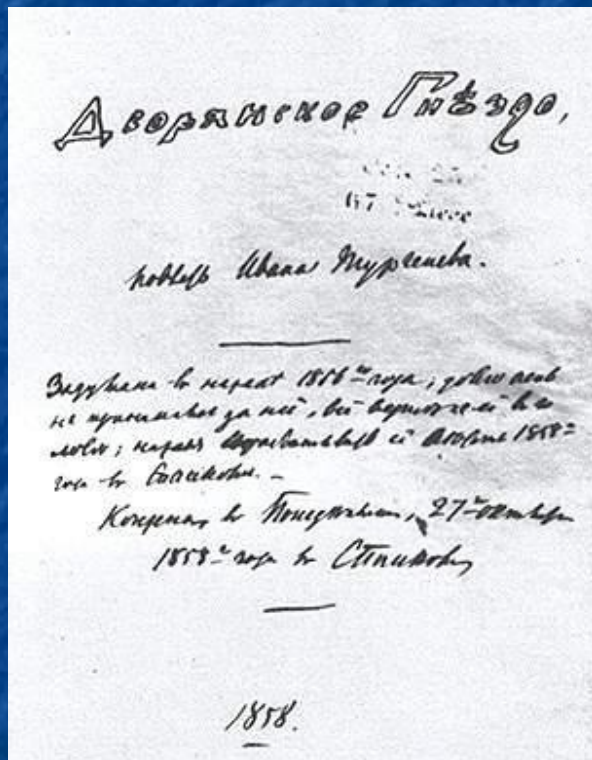 Дворянское Гнѣздо,
повѣсть Ивана Тургенева.
Задумана въ началѣ 1856го года; долго очень
не принимался за неё, всё вертѣлъ её въ го
ловѣ; началъ вырабатывать её лѣтомъ 1858го
года въ Спасскомъ. –
Кончена въ Понедѣльникъ, 27го октября
1858го года въ Спасскомъ
1858.